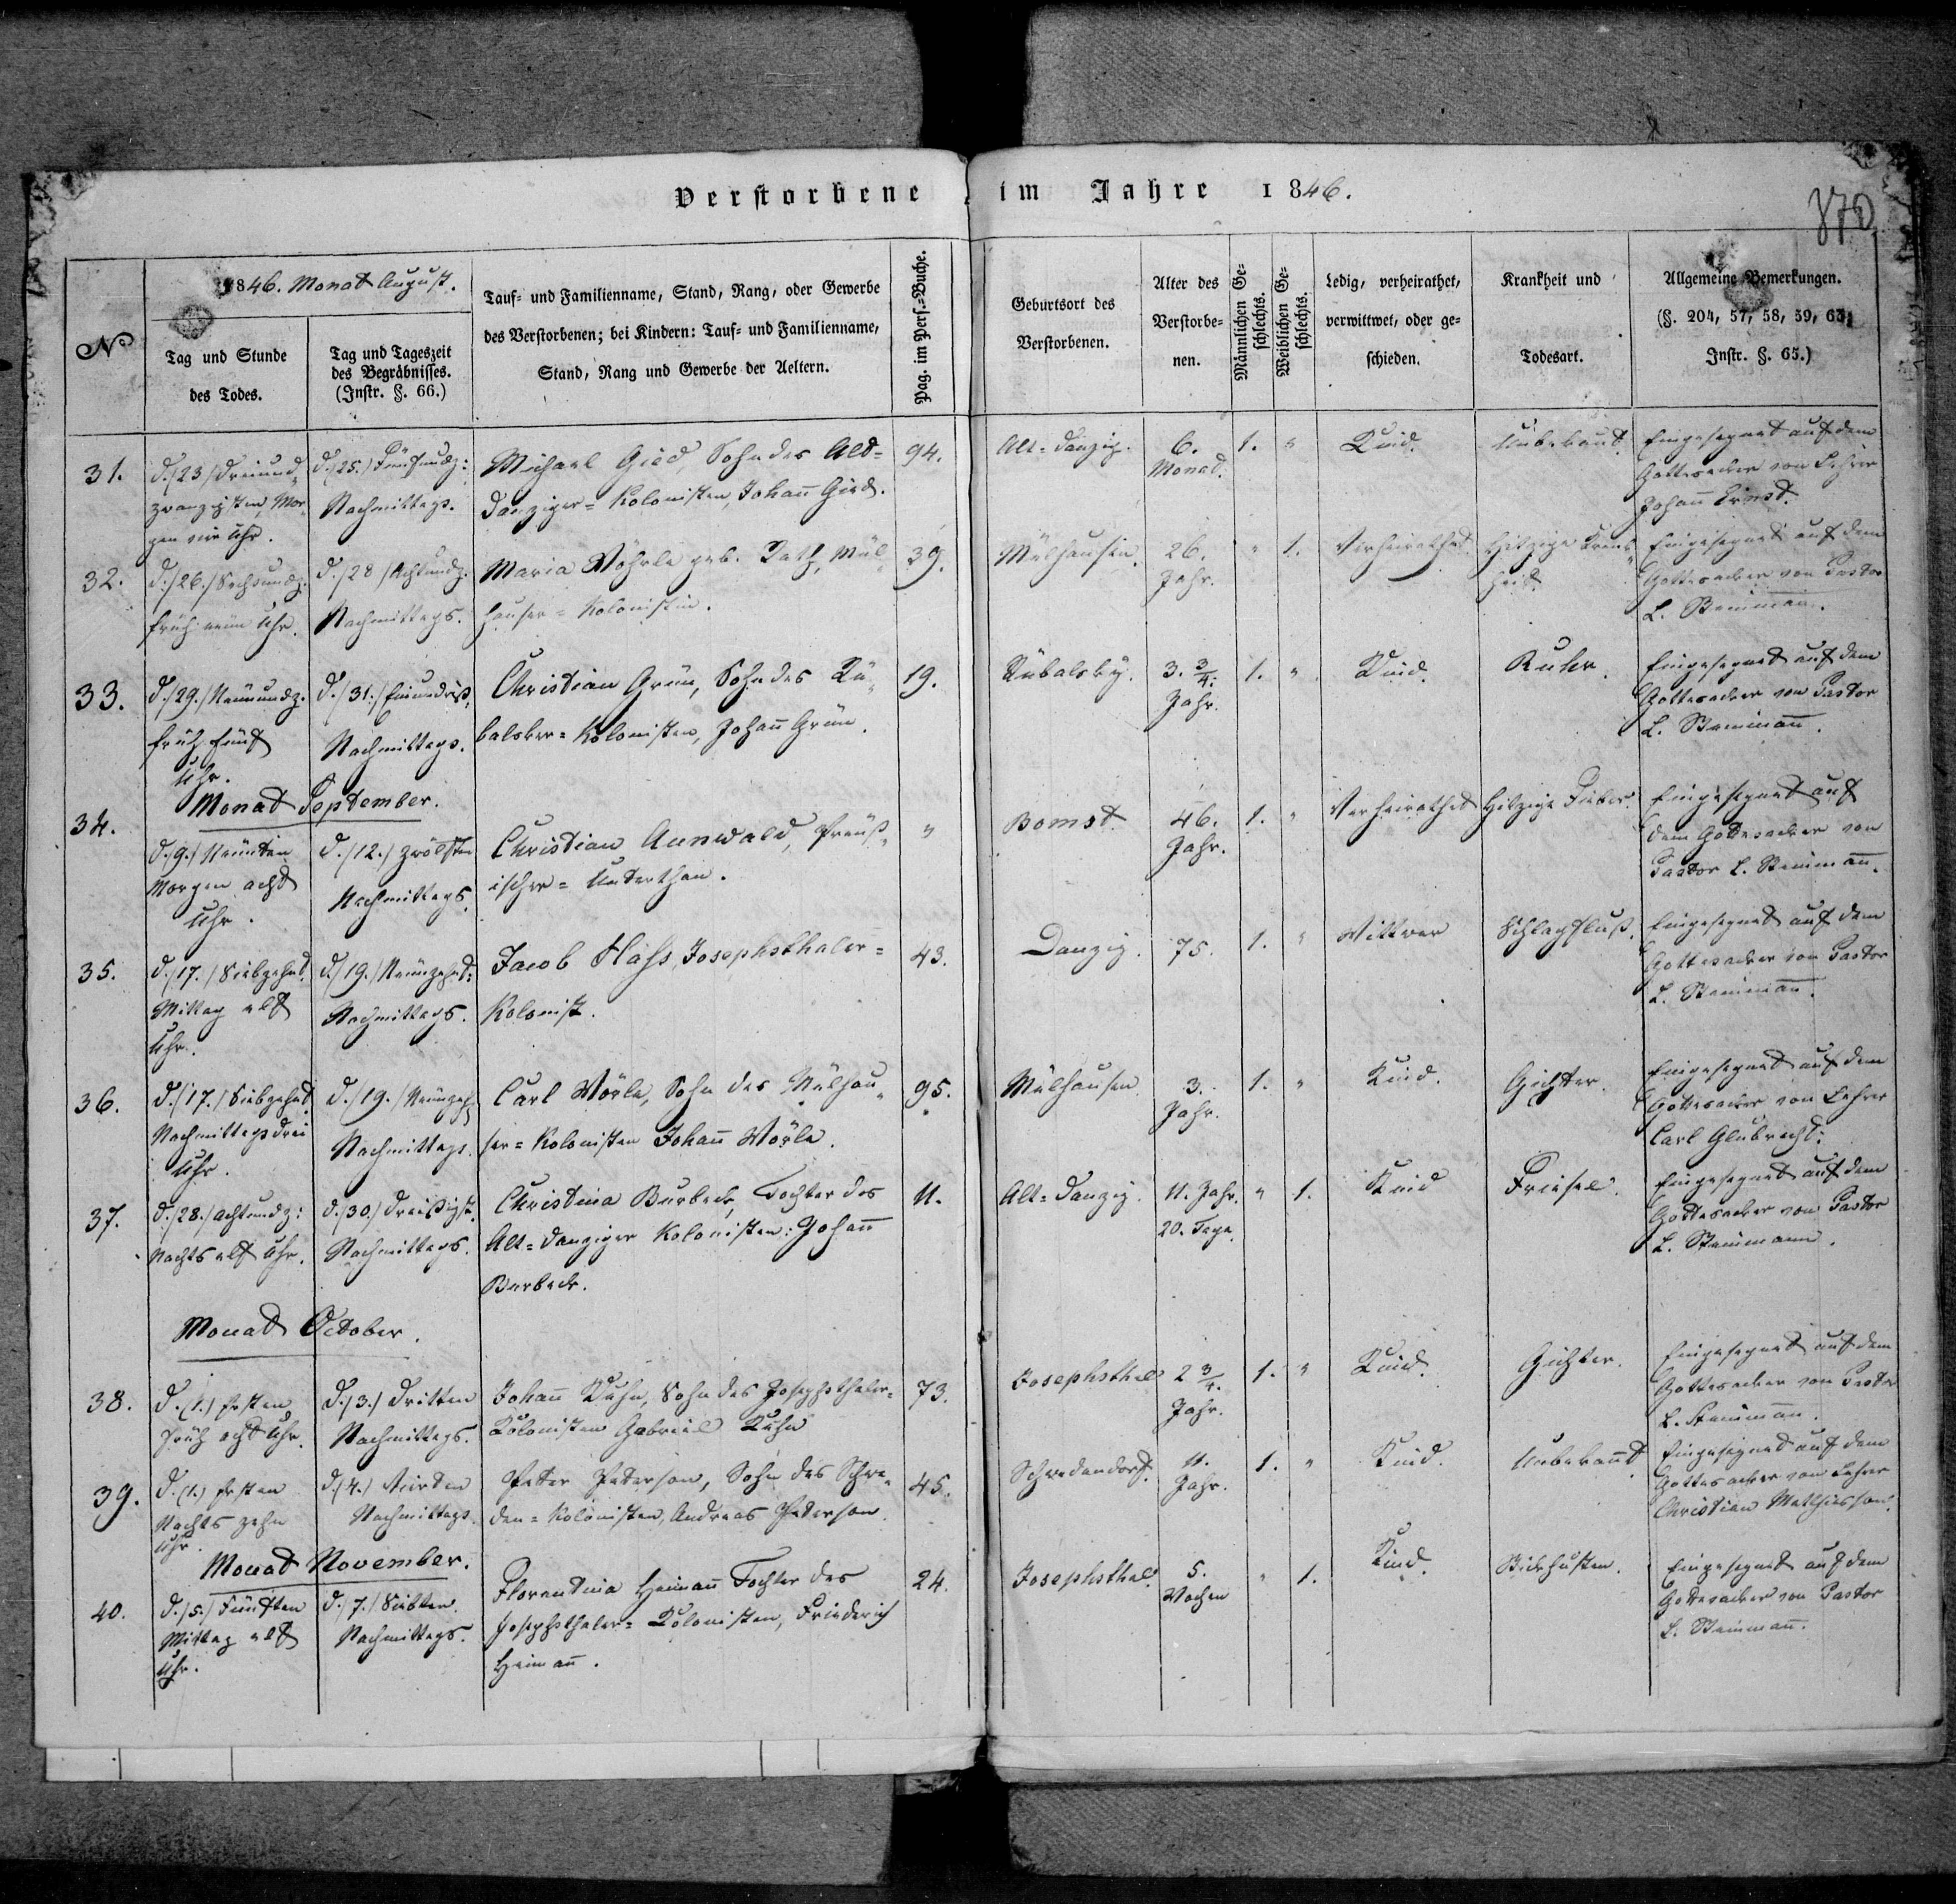 Verstorbene im Jahre 1846.
870
№
1846. Monat August.
Tag und Stunde
des Todes.
Tag und Tageszeit
des Begräbnisses.
(Instr. §. 66.)
Tauf- und Familienname, Stand, Rang, oder Gewerbe
des Verstorbenen; bei Kindern: Tauf- und Familienname,
Stand, Rang und Gewerbe der Aeltern.
Pag. im Pers.-Buche.
Geburtsort des
Verstorbenen.
Alter des
Verstorbe-
nen.
Männlichen Ge-
schlechts.
Weiblichen Ge-
schlechts.
Ledig, verheirathet,
verwittwet, oder ge-
schieden.
Krankheit und
Todesart.
Allgemeine Bemerkungen.
(§. 204, 57, 58, 59, 63,
Instr. §. 65.)
31.
d. /23/ dreiund-
zwanzigsten, Mor-
gen vier Uhr.
d. /25./ Fünfundz:
Nachmittags.
Michael Gied Sohn des Alt=
danziger= Kolonisten, Johañ Gied.
94.
Alt= danzig.
6.
Monat.
1.
"
Kind.
Unbekannt.
Eingesegnet auf dem
Gottesacker von Lehrer
Johañ Ernst.
32.
d. /26./ Sechsundz.
früh neun Uhr.
d. /28/ Achtundz.
Nachmittags.
Maria Wöhrle geb. Rath, Mül-
hauser= Kolonistin.
39.
Mülhausen.
26.
Jahr.
"
1.
Verheirathet.
Hitzige Krank-
heit.
Eingesegnet auf dem
Gottesacker von Pastor
L. Steinmañ.
33.
d. /29./ Neunundz.
früh fünf
Uhr.
d. /31./ Einunddreiß.
Nachmittags.
Christian Grün, Sohn des Rü-
balsker= Kolonisten, Johañ Grün.
19.
Rübalsky.
3. 3/4.
Jahr.
1.
"
Kind.
Ruhr.
Eingesegnet auf dem
Gottesacker von Pastor
L. Steinmañ.
Monat September.
34.
d. /9./ Neunten
Morgen acht
Uhr.
d. /12./ zwölften
Nachmittags.
Christian Aunwald, Preuß-
ischer= Unterthan.
"
Bomst.
46.
Jahr.
1.
"
Verheirathet
Hitzige Fieber.
Eingesegnet auf
dem Gottesacker von
Pastor L. Steinmañ.
35.
d. /17./ Siebzehnt.
Mittag elf
Uhr.
d. /19./ Neunzehnt:
Nachmittags.
Jacob Hass, Josephsthaler=
Kolonist.
43.
Danzig.
75.
1.
"
Wittwer
Schlagfluß.
Eingesegnet auf dem
Gottesacker von Pastor
L. Steinmañ.
36.
d. /17./ Siebzehnt.
Nachmittags drei
Uhr.
d. /19./ Neunzeh
Nachmittags.
Carl Wörle, Sohn des Mülhau-
ser= Kolonisten Johañ Wörle.
95.
Mülhausen.
3.
Jahr.
1.
"
Kind.
Gichter.
Eingesegnet auf dem
Gottesacker von Lehrer
Carl Glubrecht:
37.
d. /28./ achtundz:
Nachts elf Uhr.
d. /30./ Dreißigst.
Nachmittags.
Christina Burbeck, Tochter des
Alt= danziger Kolonisten: Johañ
Burbeck.
11.
Alt= danzig.
11. Jahr.
20. Tage.
"
1.
Kind
Friesel.
Eingesegnet auf dem
Gottesacker von Pastor
L. Steinmann.
Monat October.
38.
d. (1.) Ersten
früh acht Uhr.
d. /3./ Dritten
Nachmittags.
Johañ Kuhn, Sohn des Josephsthaler=
Kolonisten Gabriel Kuhn
73.
Josephsthal
2 3/4.
Jahr.
1.
"
Kind.
Gichter.
Eingesegnet auf dem
Gottesacker von Pastor
L. Steinmañ.
39.
d. (1.) Ersten
Nachts zehn
Uhr.
d. (4.) Vierten
Nachmittags.
Peter Peterson, Sohn des Schwe-
den= Kolonisten, Andreas Peterson.
45.
Schwedendorf.
11.
Jahr.
1.
"
Kind.
Unbekañt.
Eingesegnet auf dem
Gottesacker von Lehrer
Christian Mathiesson.
Monat November.
40.
d. /5./ Fünften
Mittag elf
Uhr.
d. /7./ Siebten.
Nachmittags.
Florentina Heimañ Tochter des
Josephsthaler= Kolonisten, Friederich
Heimañ.
24.
Josephsthal.
5.
Wochen
"
1.
Kind.
Eingesegnet auf dem
Gottesacker von Pastor
L. Steinmañ.